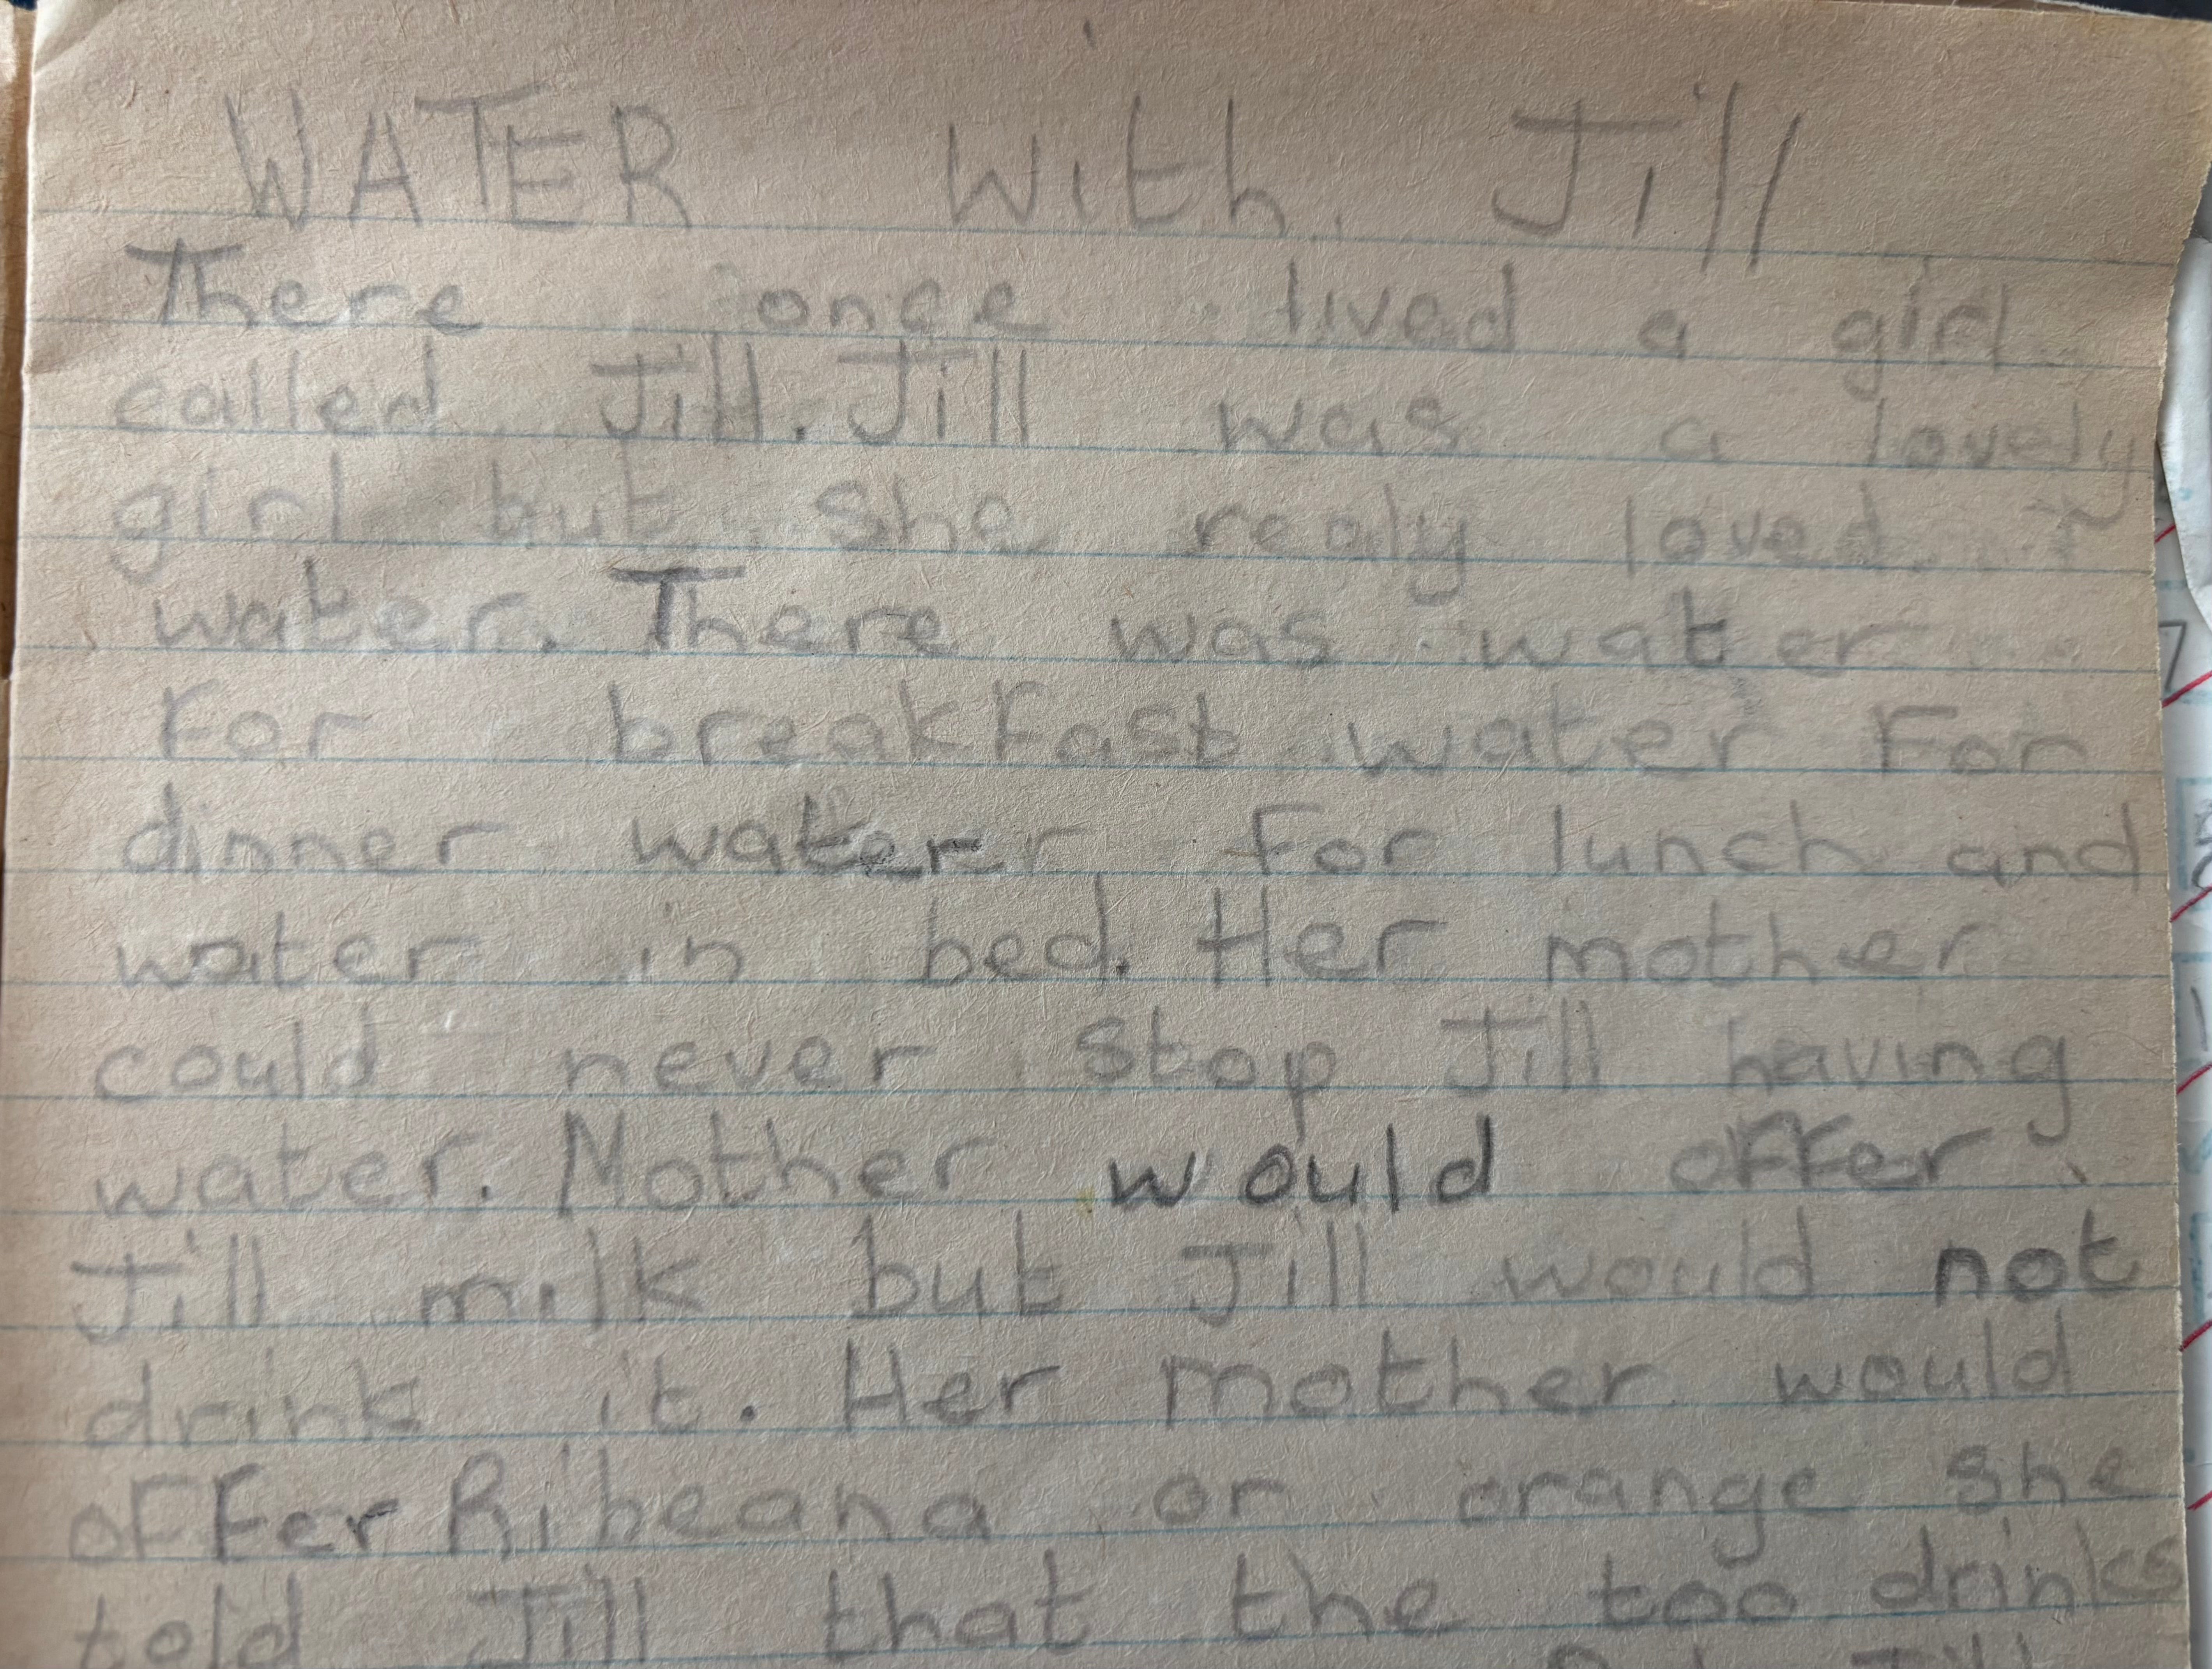 WATER With Jill
There once lived a girl
called Jill. Jill was a lovely
girl but she realy loved
water. There was water
For breakFast water For
dinner water For lunch and
water in bed. Her mother
could never stop Jill having
water. Mother would offer
Jill milk but Jill would not
drink it. Her mother would
offer Ribeana or orange she
told Jill that the too drinks
Jill